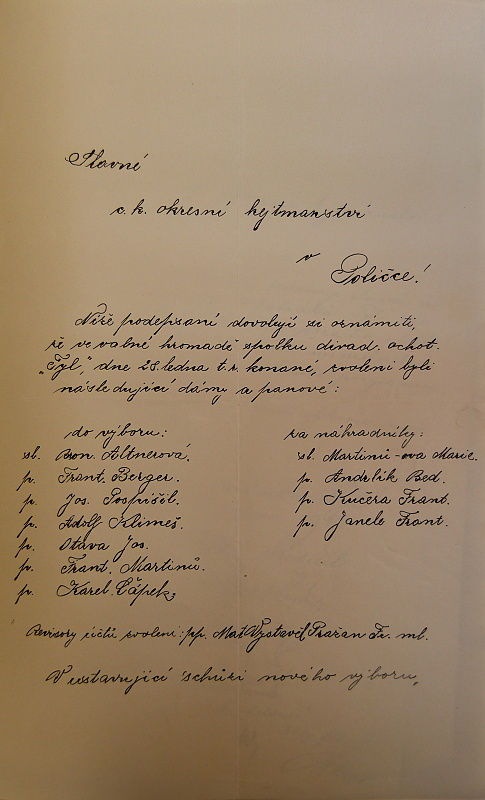 Slavné
c. k. okresní hejtmanství
v
Poličce!
Níže podepsaní dovolují si oznámiti,
že ve valné hromadě spolku divad. ochot.
„Tyl," dne 28. ledna t. r. konané, zvoleni byli
následující dámy a panové:
do výboru:
sl. Bron. Altnerová.
p. Frant. Berger.
p. Jos. Pospíšil.
p. Adolf Klimeš.
p. Otava Jos.
p. Frant. Martinů.
p. Karel Čápek,
za náhradníky:
sl. Martinů-ova Marie.
p. Andrlík Bed.
p. Kučera Frant.
p. Janele Frant.
Revisory účtů zvoleni: pp. Mat Vystavěl Pražan Fr. ml.
V ustavující schůzi nového výboru,